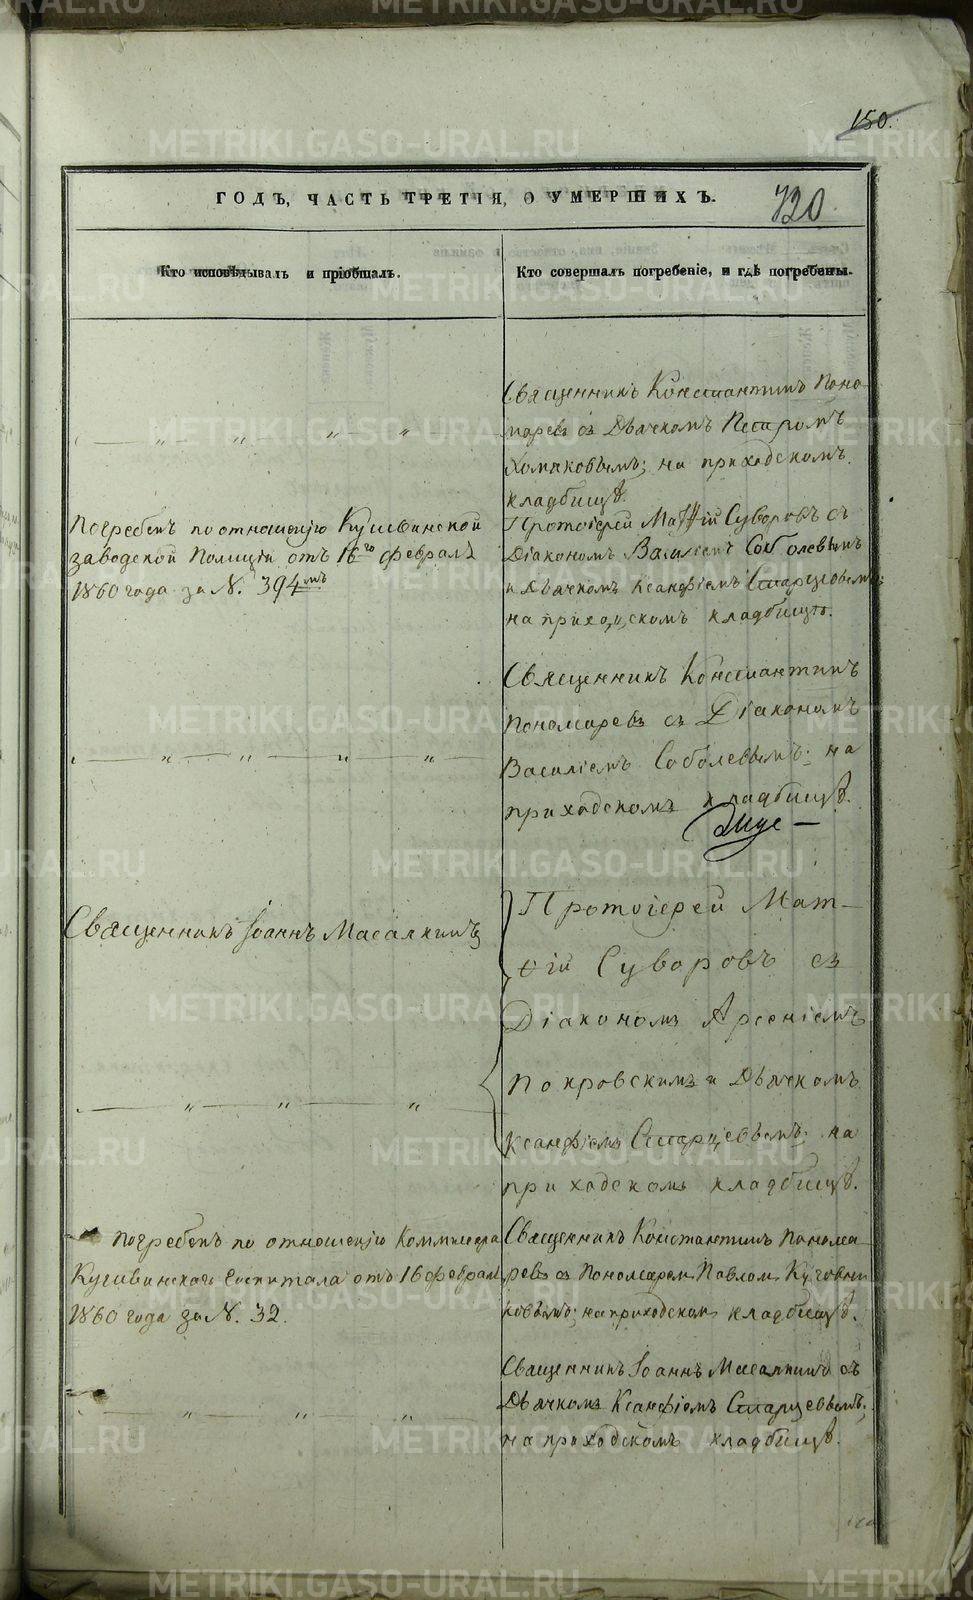 150.
ГОДЪ, ЧАСТЬ ТРЕТІЯ, О УМЕРШИХЪ.
720
Кто исповѣдывалъ и пріобщалъ.
Кто совершалъ погребеніе, и гдѣ погребены.
Священникъ Константинъ Поно-
маревъ съ Дьячкомъ Петромъ
Хомяковымъ; на приходскомъ
кладбищѣ.
Погребенъ по отношенію Кушвинской
заводской Полиціи отъ 16го февраля
1860 года за №. 394мъ
Протоіерей Матѳій Суворовъ съ
Діакономъ Василіемъ Соболевымъ
и Дьячкомъ Ксанфіемъ Старцевымъ;
на приходскомъ кладбищѣ.
Священникъ Константинъ
Пономаревъ съ Діакономъ
Василіемъ Соболевымъ; на
приходскомъ кладбищѣ.
Священникъ Іоаннъ Масалкинъ
Протоіерей Мат-
ѳій Суворовъ съ
Діакономъ Арсеніемъ
Покровскимъ и Дьячкомъ
Ксанфіемъ Старцевымъ; на
приходскомъ кладбищѣ.
Погребенъ по отношенію Коммисера
Кушвинскаго Госпиталя отъ 16 февраля
1860 года за №. 32.
Священникъ Константинъ Понома-
ревъ съ Пономаремъ Павломъ
ковымъ; на приходскомъ кладбищѣ.
Священникъ Іоаннъ Масалкинъ съ
Дьячкомъ Ксанфіемъ Старцевымъ;
на приходскомъ кладбищѣ.
METRIKI.GASO-URAL.RU